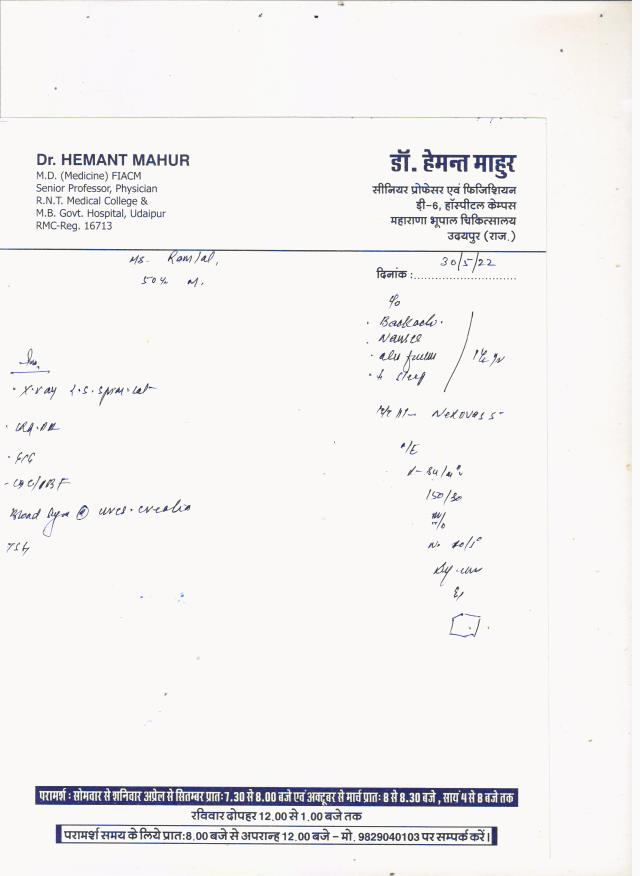 Dr. HEMANT MAHUR
M.D. (Medicine) FIACM
Senior Professor, Physician
R.N.T. Medical College &
M.B. Govt. Hospital, Udaipur
RMC-Reg. 16713
डॉ. हेमन्त माहुर
सीनियर प्रोफेसर एवं फिजिशियन
डी-6, हॉस्पीटल केम्पस
महाराणा भूपाल चिकित्सालय
उदयपुर (राज.)
Ramlal,
50 M.
दिनांक : 30/5/22
c/o
• Backache.
• Nausea
• sleep
Inv.
• X-ray L.S. Spine-lat
• ECG
- CBC/PBF
Blood Sugar urea. creatin
TSH
O/E
150/90
परामर्श : सोमवार से शनिवार अप्रेल से सितम्बर प्रातः 7.30 से 8.00 बजे एवं अक्टूबर से मार्च प्रातः 8 से 8.30 बजे , सायं 4 से 8 बजे तक
रविवार दोपहर 12.00 से 1.00 बजे तक
परामर्श समय के लिये प्रातः 8.00 बजे से अपरान्ह 12.00 बजे - मो. 9829040103 पर सम्पर्क करें।